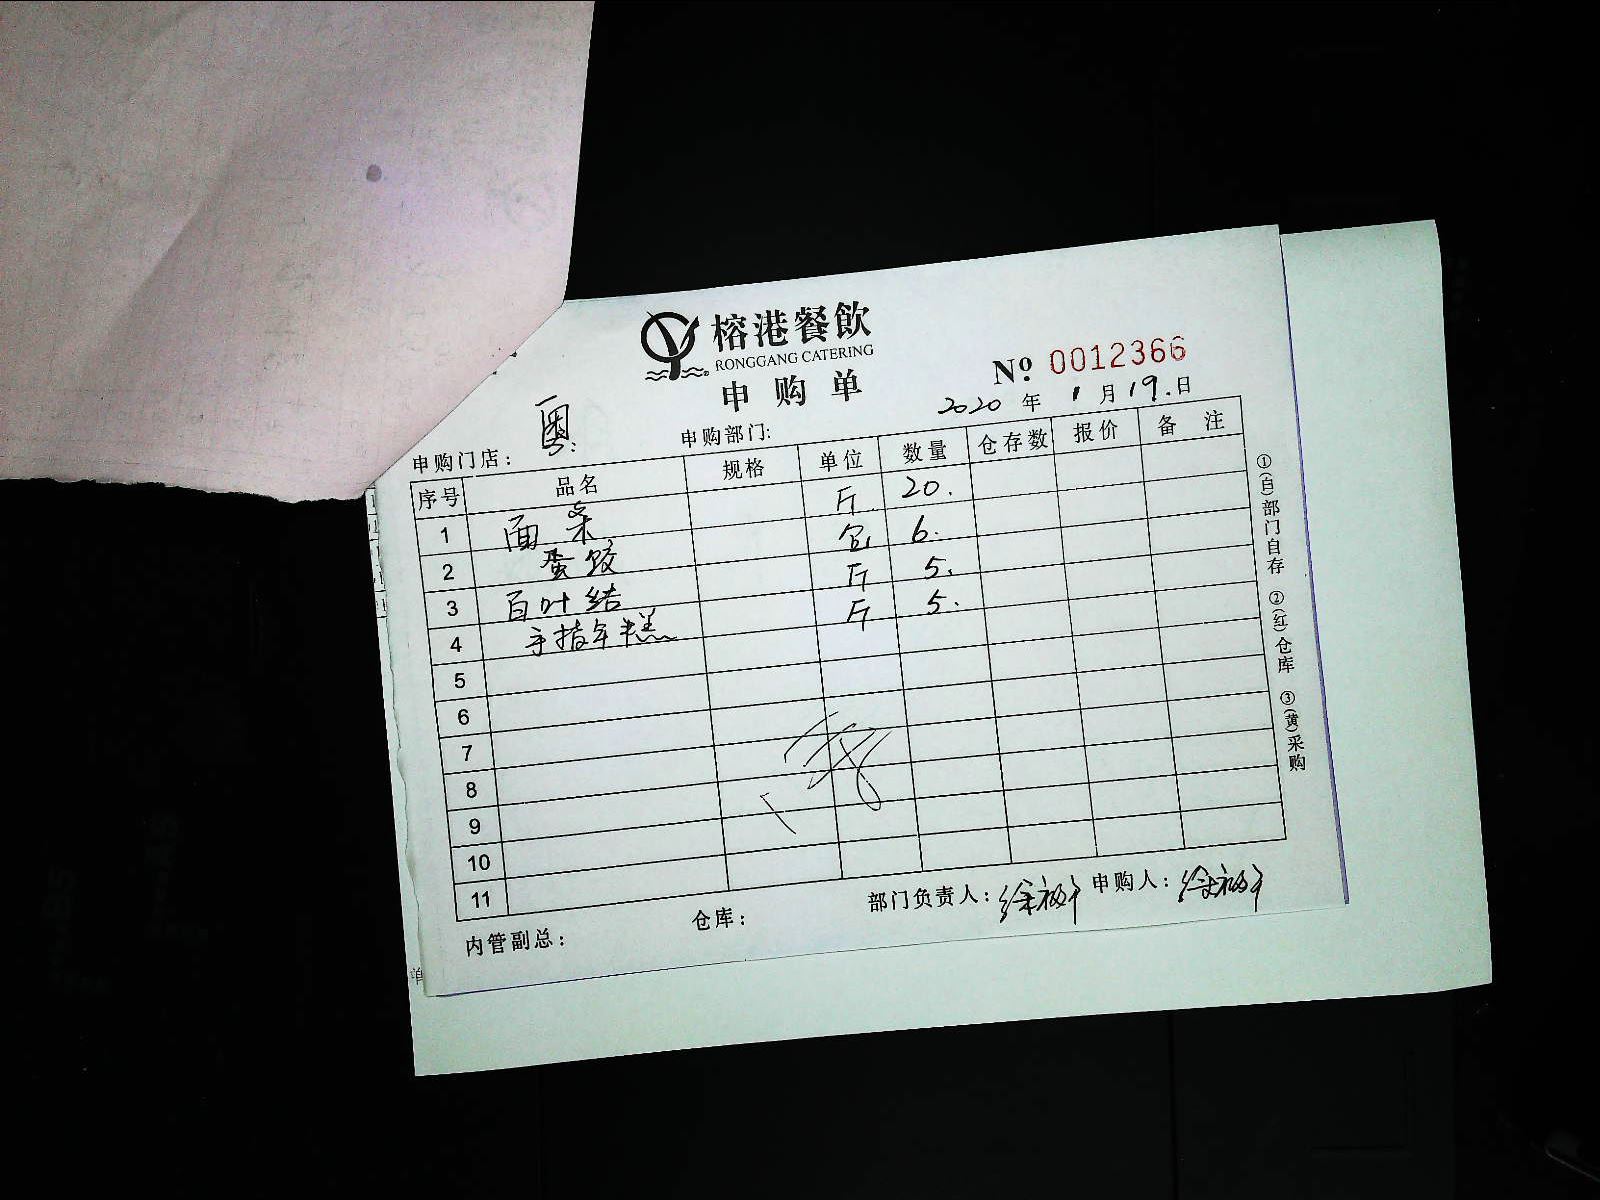 榕港餐飲
RONGGANG CATERING
申购单
№ 0012366
2020年1月19.日
申购门店：粤 申购部门:
序号 品名 规格 单位 数量 仓存数 报价 备注
1 面条 斤 20.
2 蛋饺 包 6.
3 百叶结 斤 5.
4 手指年糕 斤 5.
5
6
7
8
9
10
11
内管副总： 仓库： 部门负责人： 申购人：
①(白)部门自存 ②(红)仓库 ③(黄)采购
单